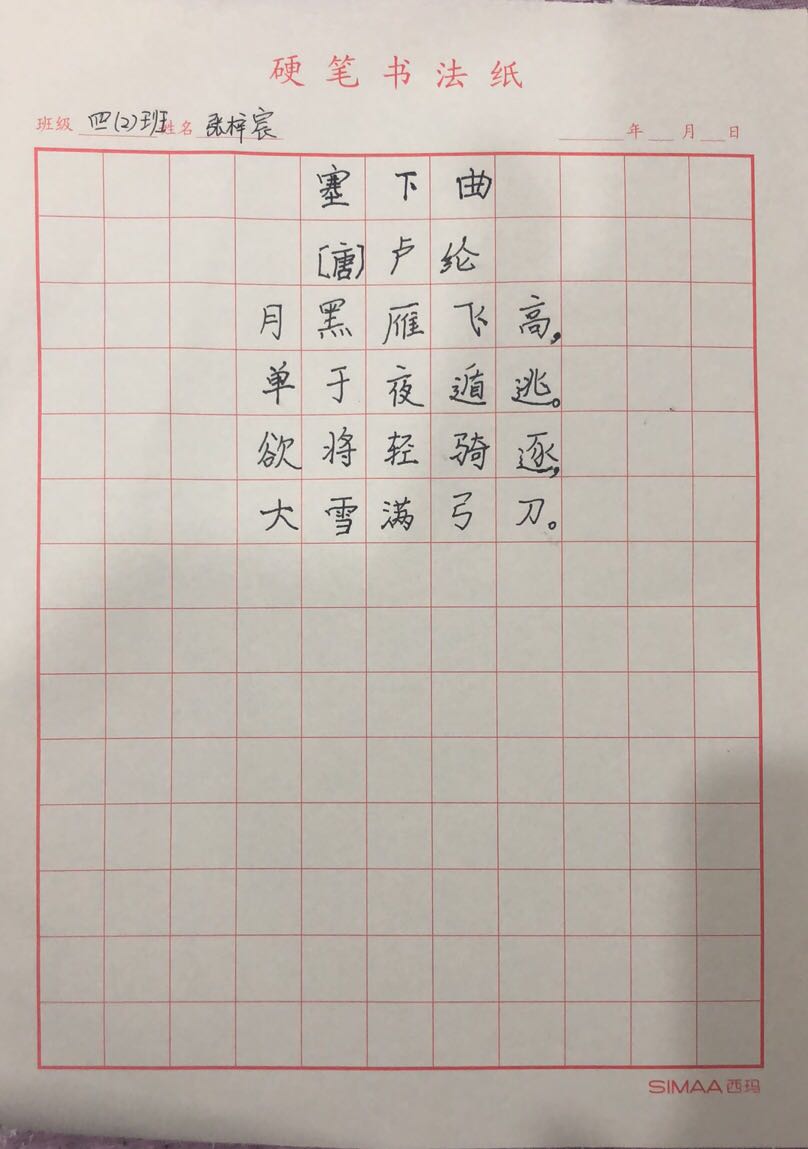 硬笔书法纸
班级 四(2)班 姓名 张梓宸 年 月 日
塞下曲
[唐]卢纶
月黑雁飞高,
单于夜遁逃。
欲将轻骑逐,
大雪满弓刀。
SIMAA 西玛